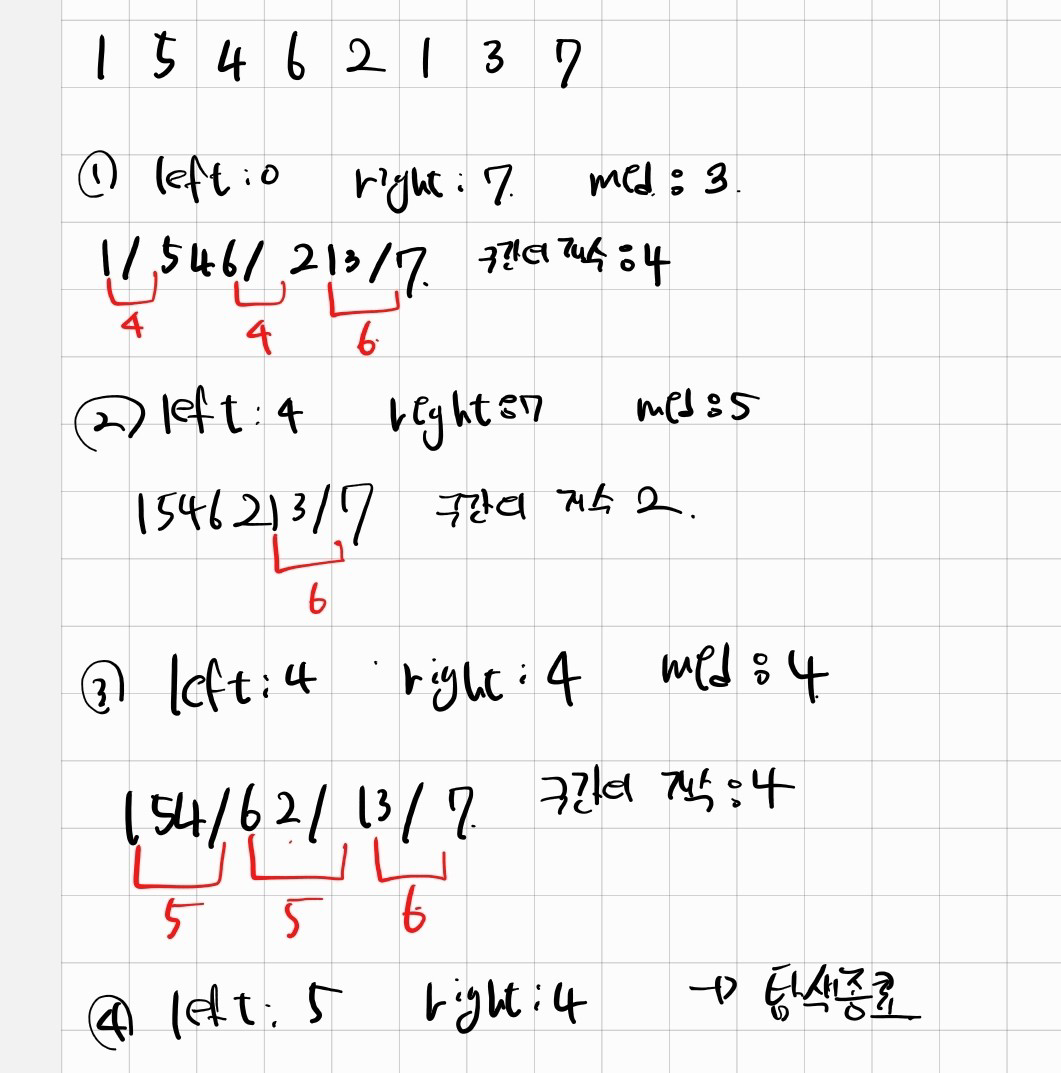 1 5 4 6 2 1 3 7
① left : 0 right : 7. mid : 3.
1 / 546 / 213 / 7. 구간의 개수 : 4
4 4 6
② left : 4 right : 7 mid : 5
1546213 / 7 구간의 개수 2.
6
③ left : 4 right : 4 mid : 4
154 / 62 / 13 / 7. 구간의 개수 : 4
5 5 6
④ left : 5 right : 4 → 탐색종료